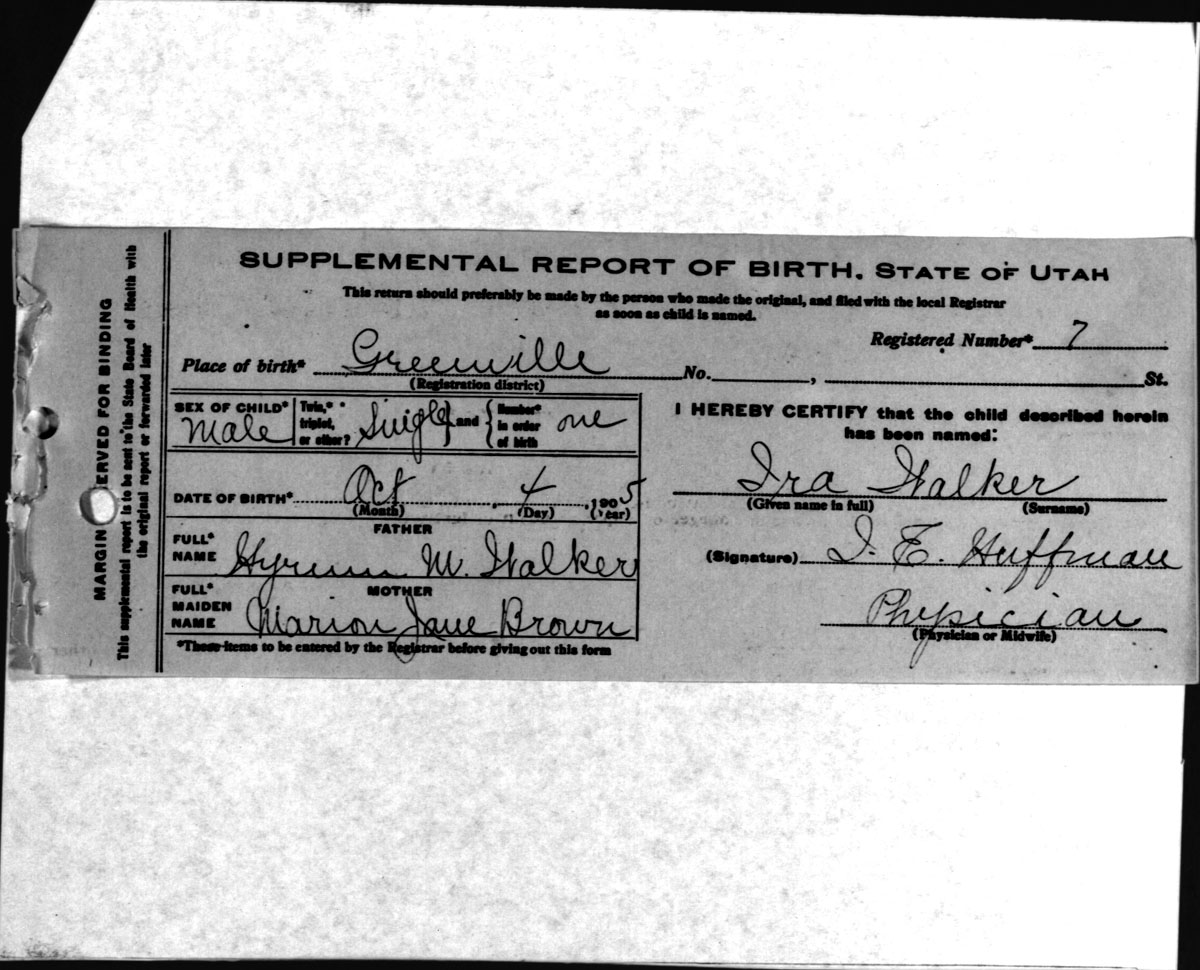 SUPPLEMENTAL REPORT OF BIRTH. STATE OF UTAH
This return should preferably be made by the person who made the original, and filed with the local Registrar
as soon as child is named.
Registered Number* 7
Place of birth* Greenville No. , St.
(Registration district)
SEX OF CHILD* Male
Twin,* triplet, or other? Single and
Number* in order of birth one
DATE OF BIRTH* Oct 4, 1905
(Month) (Day) (Year)
FATHER
FULL* NAME Hyrum M. Walker
MOTHER
FULL* MAIDEN NAME Marion Jane Brown
*These items to be entered by the Registrar before giving out this form
I HEREBY CERTIFY that the child described herein
has been named:
Ira Walker
(Given name in full) (Surname)
(Signature) J. E. Huffman
Physician
(Physician or Midwife)
MARGIN ERVED FOR BINDING
This supplemental report is to be sent to the State Board of Health with
the original report or forwarded later